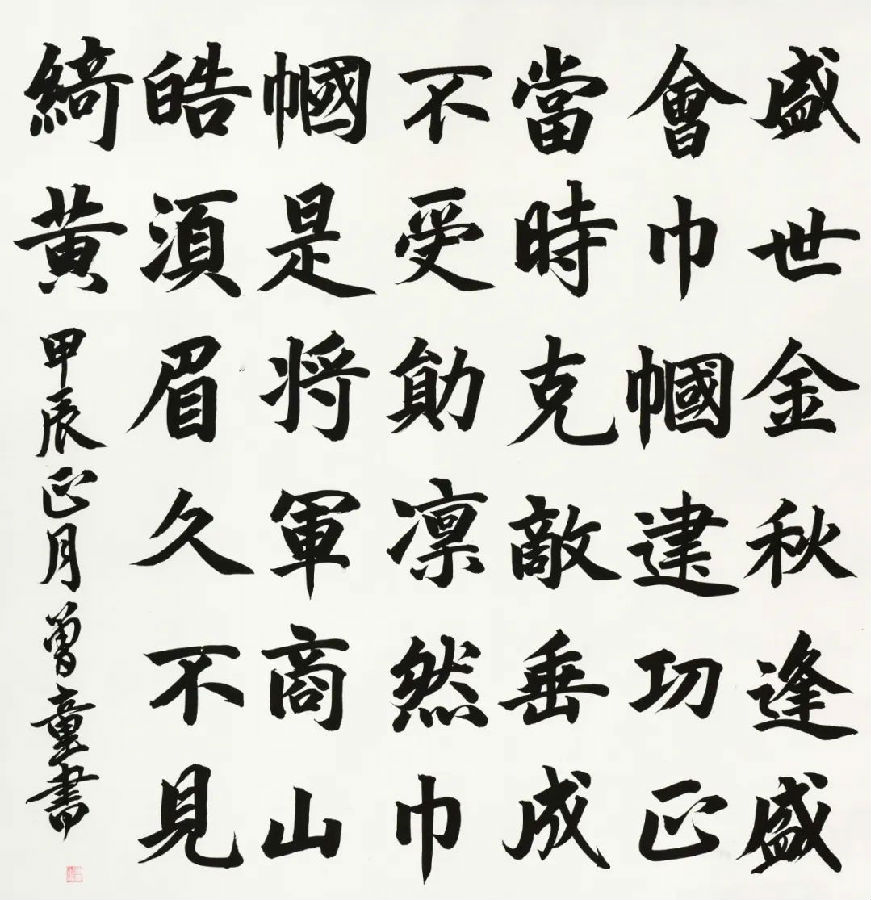 盛世金秋逢盛
會巾幗建功正
當時克敵垂成
不受勛凛然巾
幗是将軍商山
皓須眉久不見
綺黄 甲辰正月曾童書